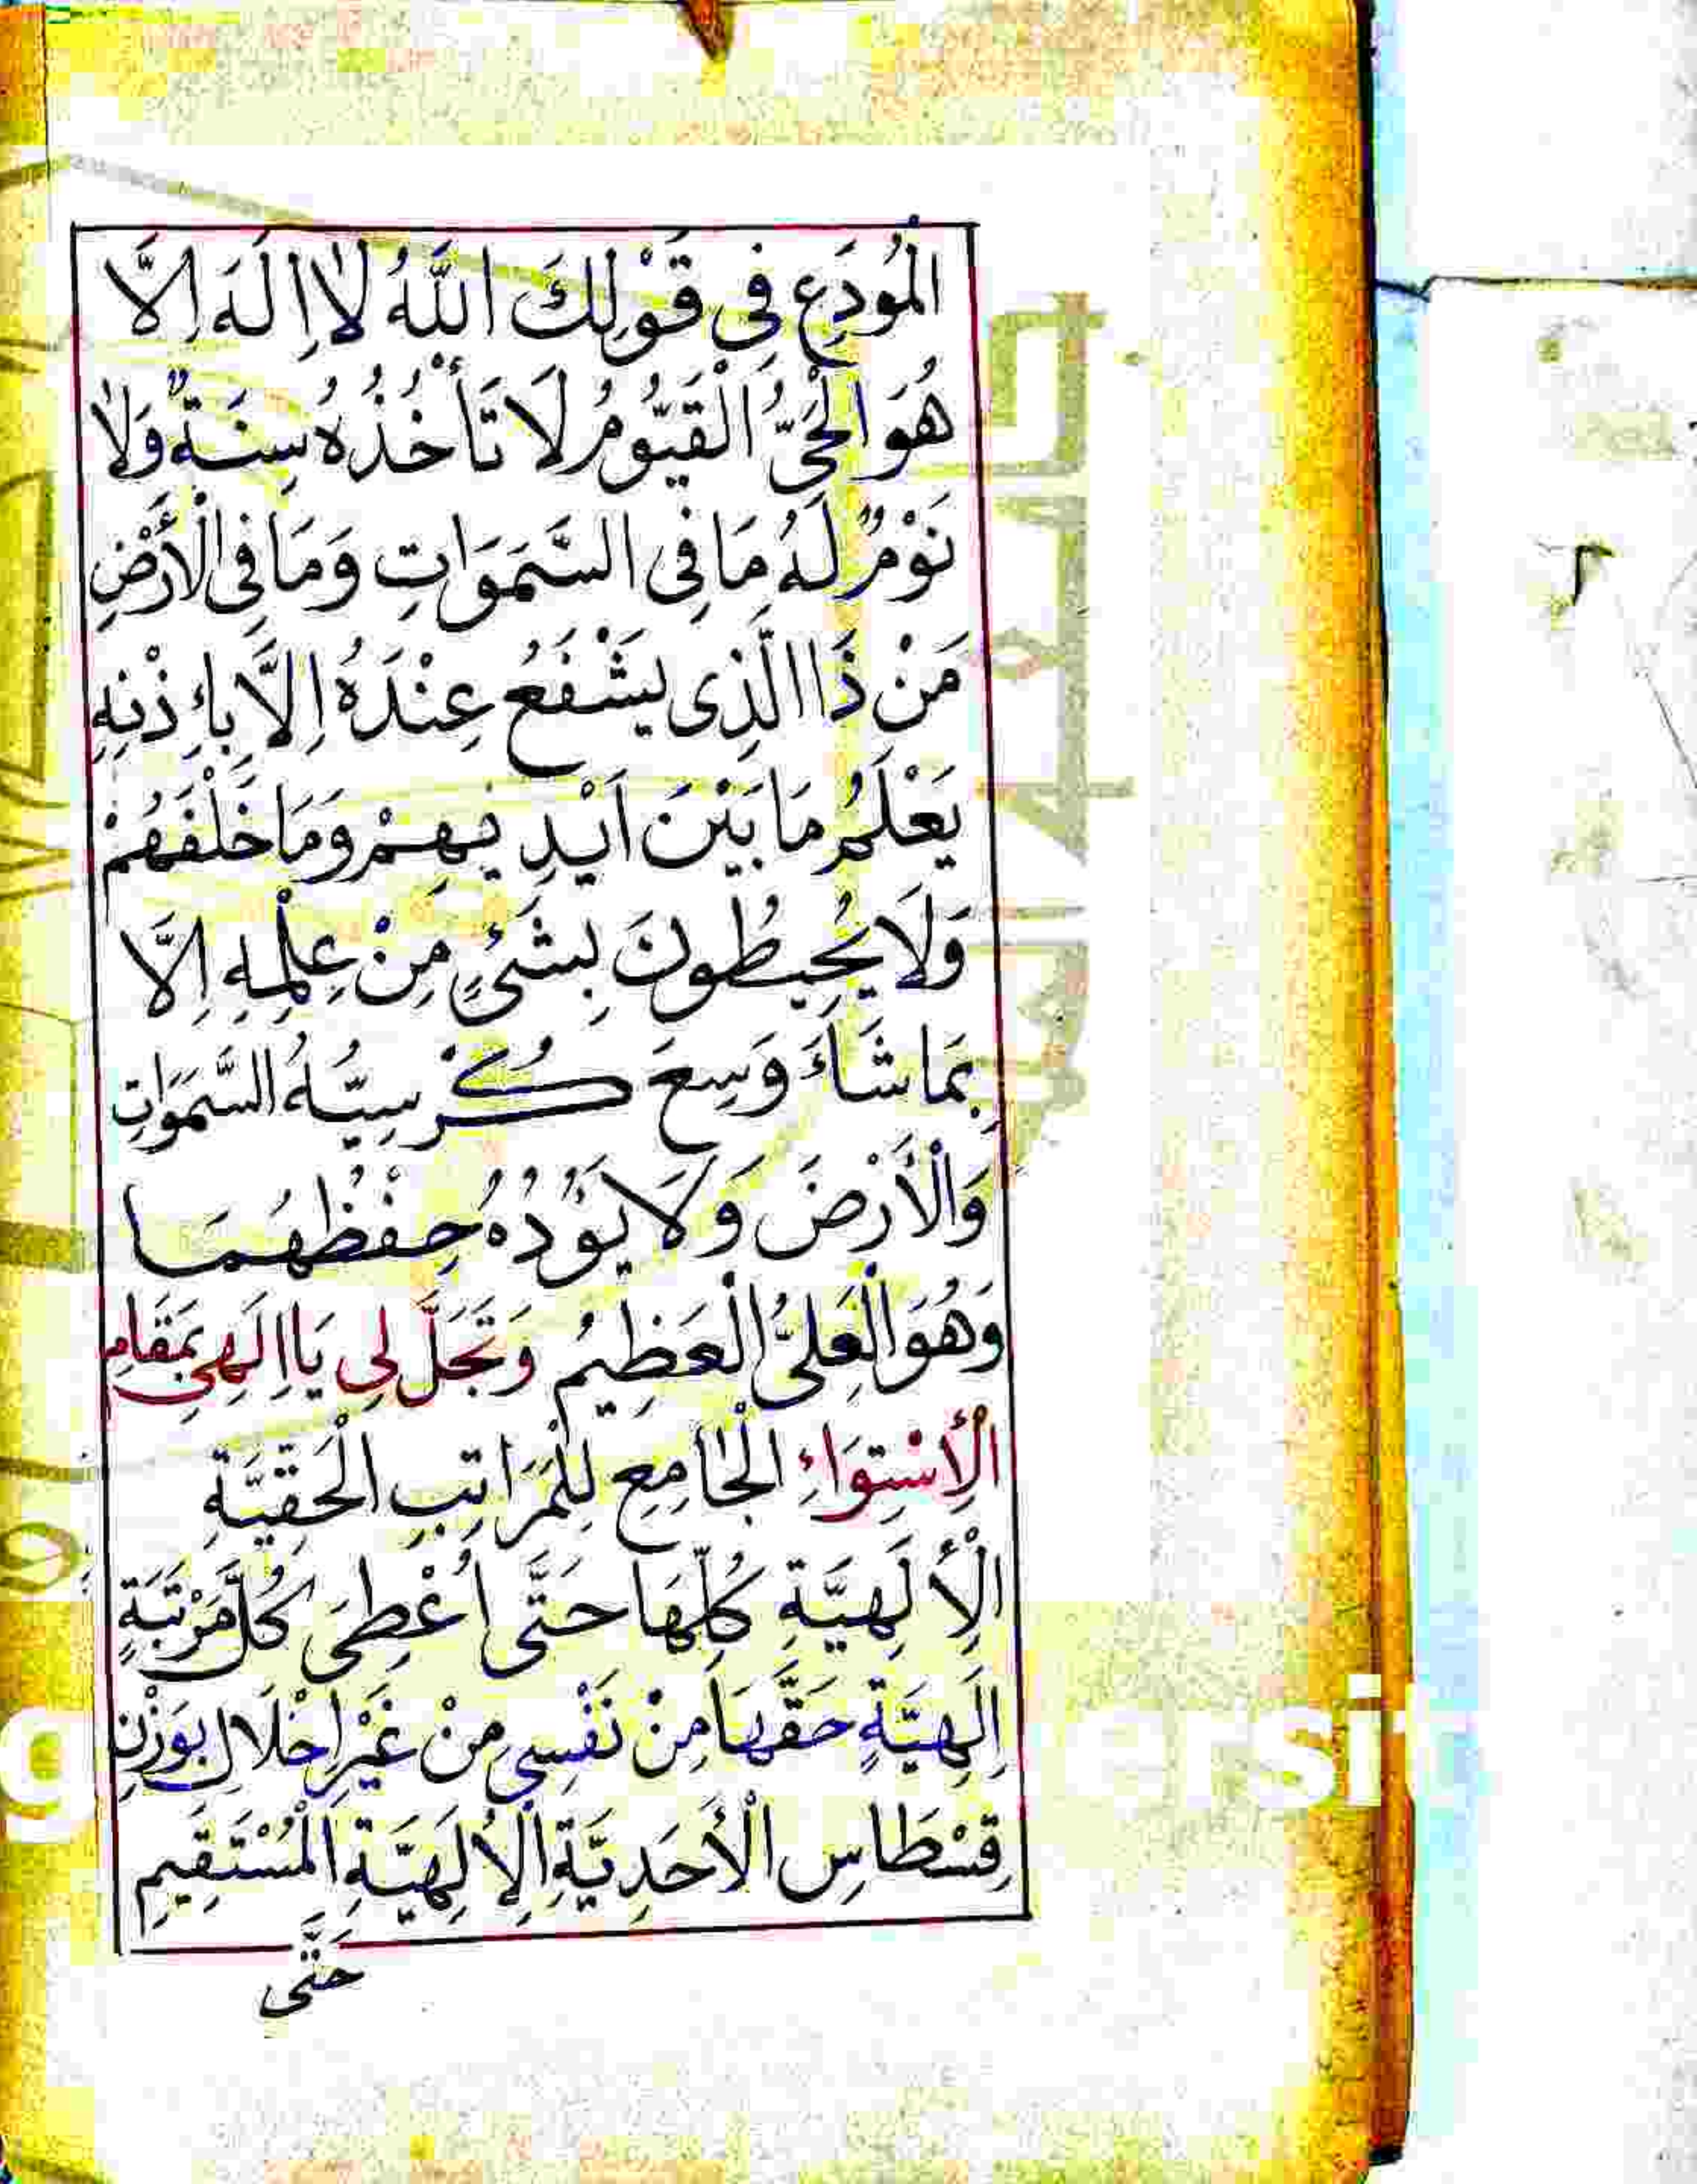 الْمُودَعِ فِى قَوْلِكَ اَللّٰهُ لَا اِلَهَ اِلَّا
هُوَ الْحَىُّ الْقَيُّومُ لَا تَأْخُذُهُ سِنَةٌ وَلَا
نَوْمٌ لَهُ مَا فِى السَّمَوَاتِ وَمَا فِى الْأَرْضِ
مَنْ ذَا الَّذِى يَشْفَعُ عِنْدَهُ اِلَّا بِاِذْنِهِ
يَعْلَمُ مَا بَيْنَ اَيْدِيهِمْ وَمَا خَلْفَهُمْ
وَلَا يُحِيطُونَ بِشَىْءٍ مِنْ عِلْمِهِ اِلَّا
بِمَا شَاءَ وَسِعَ كُرْسِيُّهُ السَّمَوَاتِ
وَالْأَرْضَ وَلَا يَؤُدُهُ حِفْظُهُمَا
وَهُوَ الْعَلِىُّ الْعَظِيمُ وَتَجَلَّ لِى يَا اِلَهِى بِمَقَامِ
الْإِسْتِوَاءِ الْجَامِعِ لِلْمَرَاتِبِ الْحَقِّيَّةِ
الْإِلَهِيَّةِ كُلِّهَا حَتَّى اُعْطِىَ كُلَّ مَرْتَبَةٍ
اِلَهِيَّةٍ حَقَّهَا مِنْ نَفْسِى مِنْ غَيْرِ اِخْلَالٍ بِوَزْنِ
قِسْطَاسِ الْأَحَدِيَّةِ الْإِلَهِيَّةِ الْمُسْتَقِيمِ
حَتَّى